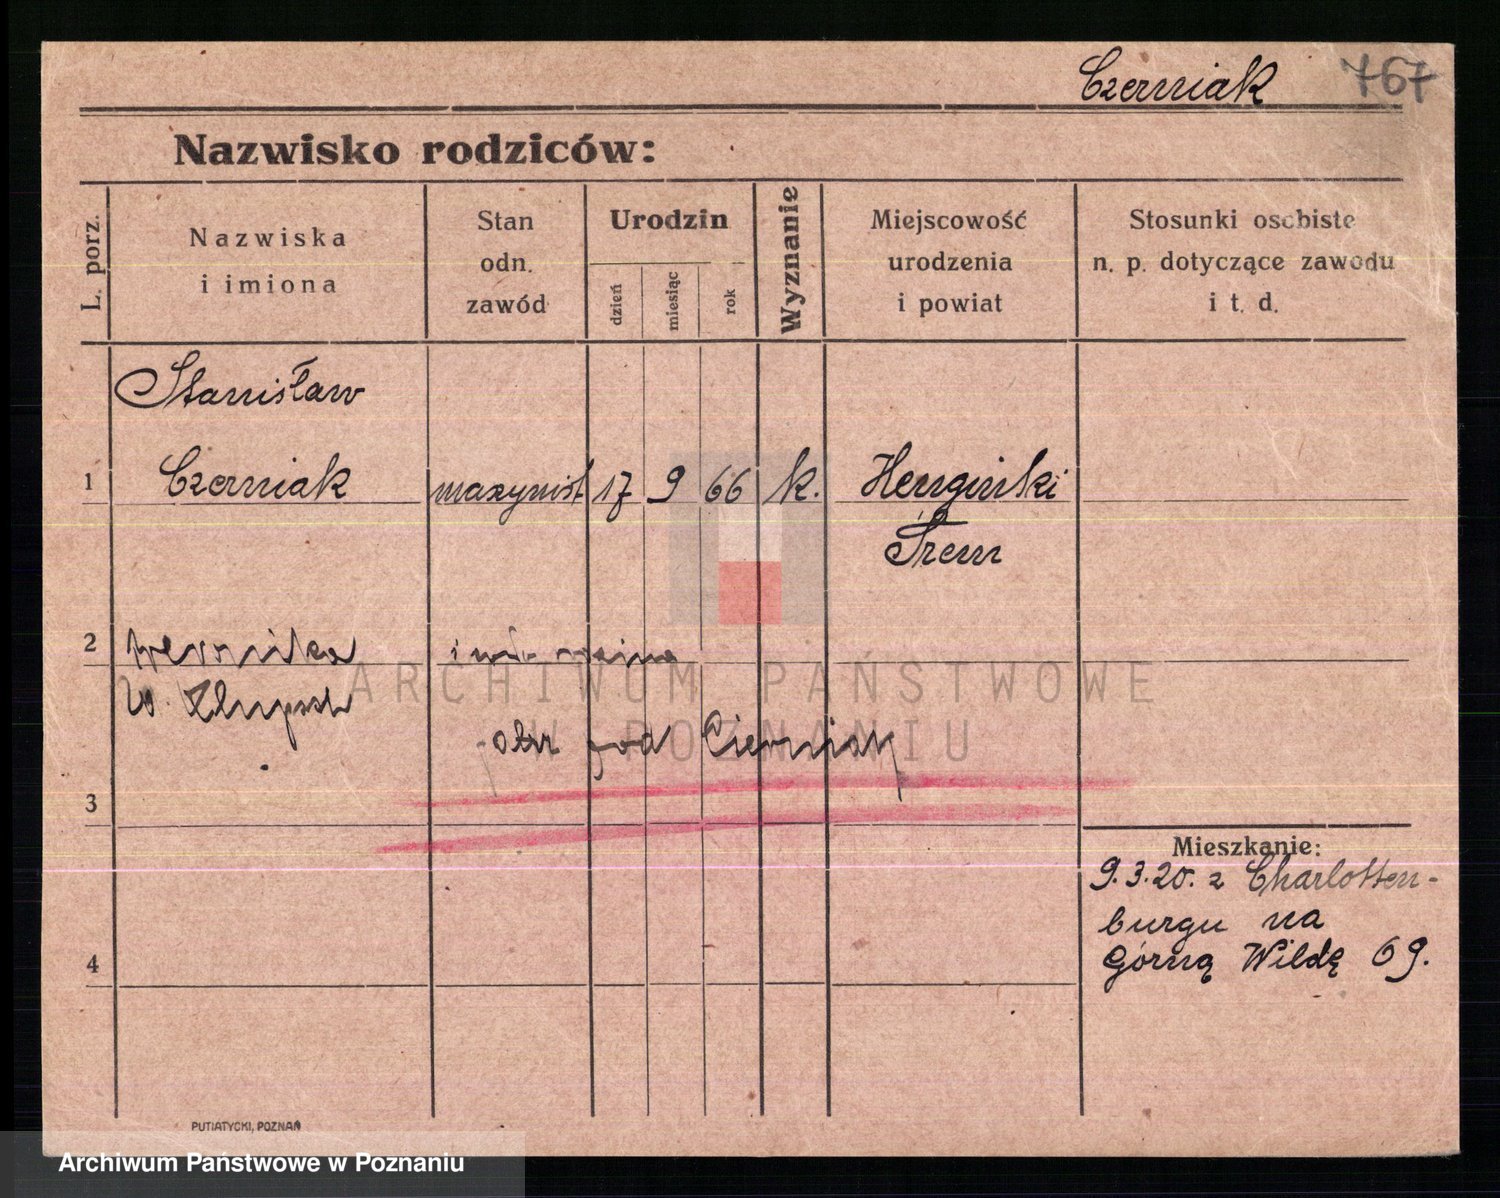 Czerniak 767
Nazwisko rodziców:
L. porz.
Nazwiska
i imiona
Stan
odn.
zawód
Urodzin
dzień
miesiąc
rok
Wyznanie
Miejscowość
urodzenia
i powiat
Stosunki osobiste
n. p. dotyczące zawodu
i t. d.
Stanisław
1 Czerniak maszynist 17 9 66 k.
Śrem
2 Weronika
ARCHIWUM PAŃSTWOWE
W POZNANIU
obr pod Cierniak
3
Mieszkanie:
9.3.20. z Charlotten-
burgu na
4 Górną Wildę 69.
PUTIATYCKI, POZNAŃ
Archiwum Państwowe w Poznaniu